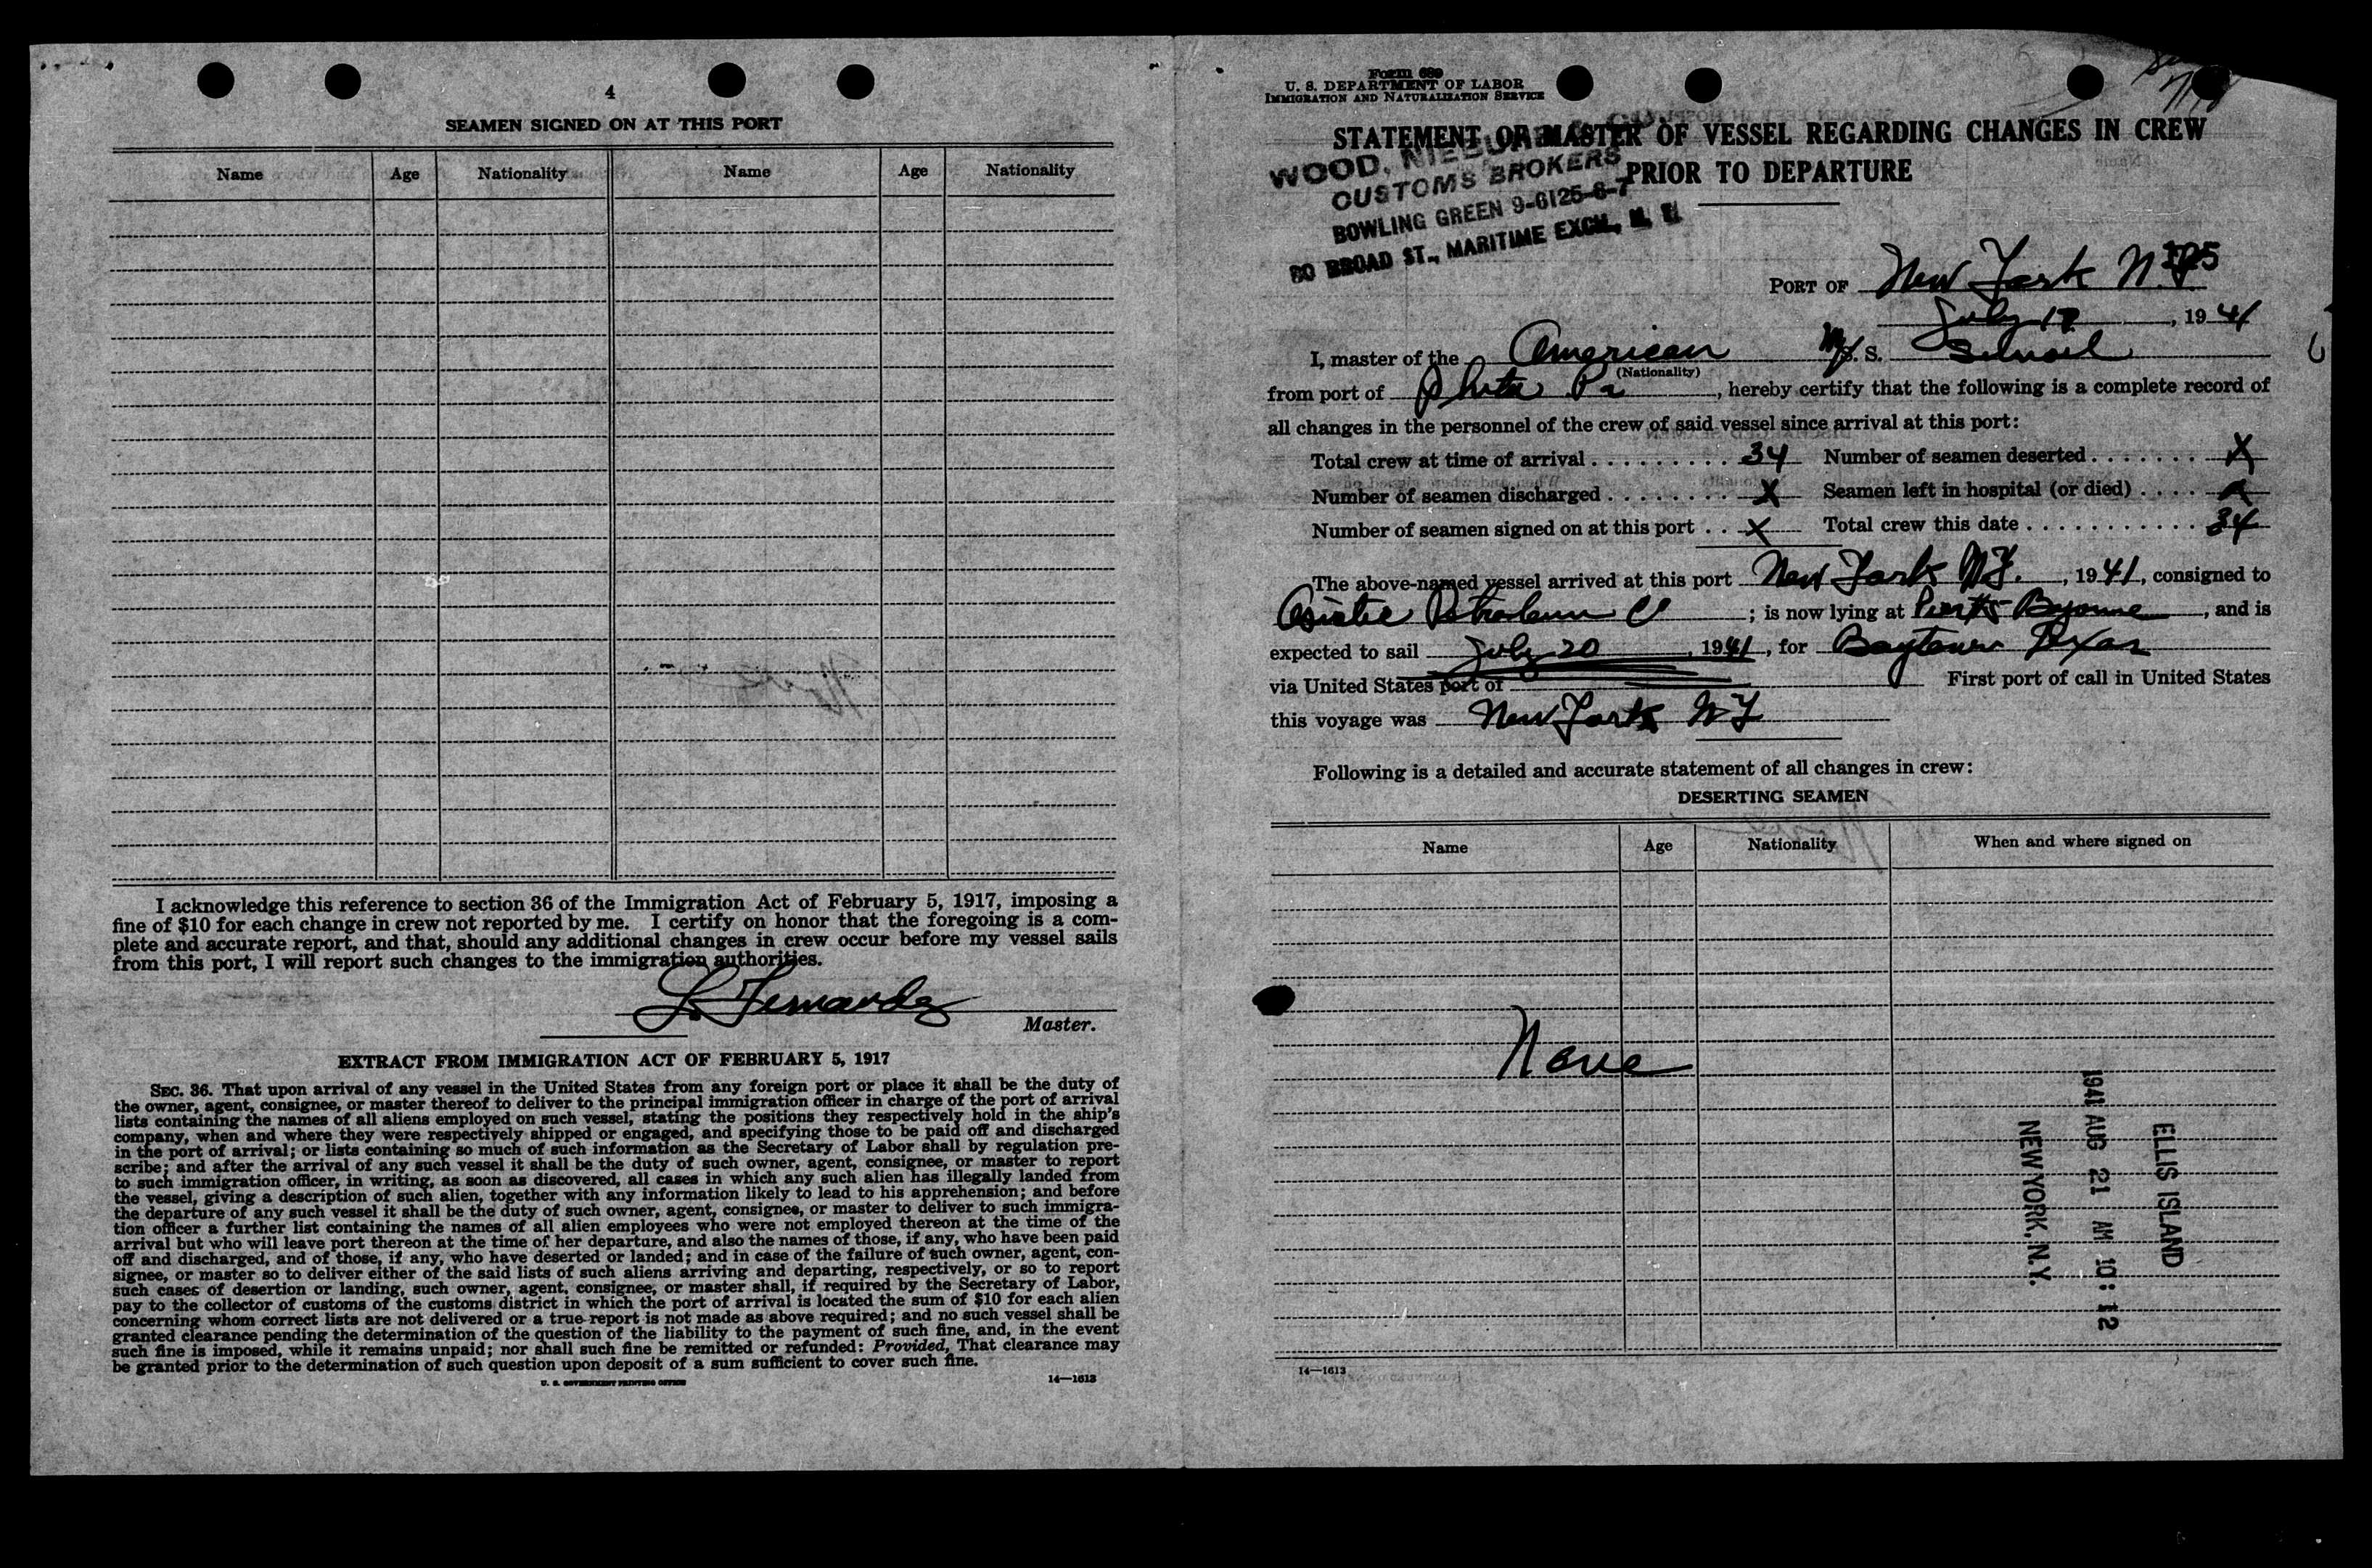 4
SEAMEN SIGNED ON AT THIS PORT
Name Age Nationality Name Age Nationality
I acknowledge this reference to section 36 of the Immigration Act of February 5, 1917, imposing a
fine of $10 for each change in crew not reported by me. I certify on honor that the foregoing is a com-
plete and accurate report, and that, should any additional changes in crew occur before my vessel sails
from this port, I will report such changes to the immigration authorities.
Master.
EXTRACT FROM IMMIGRATION ACT OF FEBRUARY 5, 1917
SEC. 36. That upon arrival of any vessel in the United States from any foreign port or place it shall be the duty of
the owner, agent, consignee, or master thereof to deliver to the principal immigration officer in charge of the port of arrival
lists containing the names of all aliens employed on such vessel, stating the positions they respectively hold in the ship's
company, when and where they were respectively shipped or engaged, and specifying those to be paid off and discharged
in the port of arrival; or lists containing so much of such information as the Secretary of Labor shall by regulation pre-
scribe; and after the arrival of any such vessel it shall be the duty of such owner, agent, consignee, or master to report
to such immigration officer, in writing, as soon as discovered, all cases in which any such alien has illegally landed from
the vessel, giving a description of such alien, together with any information likely to lead to his apprehension; and before
the departure of any such vessel it shall be the duty of such owner, agent, consignee, or master to deliver to such immigra-
tion officer a further list containing the names of all alien employees who were not employed thereon at the time of the
arrival but who will leave port thereon at the time of her departure, and also the names of those, if any, who have been paid
off and discharged, and of those, if any, who have deserted or landed; and in case of the failure of such owner, agent, con-
signee, or master so to deliver either of the said lists of such aliens arriving and departing, respectively, or so to report
such cases of desertion or landing, such owner, agent, consignee, or master shall, if required by the Secretary of Labor,
pay to the collector of customs of the customs district in which the port of arrival is located the sum of $10 for each alien
concerning whom correct lists are not delivered or a true report is not made as above required; and no such vessel shall be
granted clearance pending the determination of the question of the liability to the payment of such fine, and, in the event
such fine is imposed, while it remains unpaid; nor shall such fine be remitted or refunded: Provided, That clearance may
be granted prior to the determination of such question upon deposit of a sum sufficient to cover such fine.
U. S. GOVERNMENT PRINTING OFFICE 14—1613
Form 689
U. S. DEPARTMENT OF LABOR
IMMIGRATION AND NATURALIZATION SERVICE
STATEMENT OF MASTER OF VESSEL REGARDING CHANGES IN CREW
PRIOR TO DEPARTURE
WOOD,
CUSTOMS BROKERS
BOWLING GREEN 9-6125-6-7
80 BROAD ST., MARITIME EXCH., N. Y.
PORT OF New York N.Y. 125
July 17, 1941
I, master of the American M/S. S.
(Nationality)
from port of Phila Pa, hereby certify that the following is a complete record of
all changes in the personnel of the crew of said vessel since arrival at this port:
Total crew at time of arrival . . . . . . . . . 34 Number of seamen deserted . . . . . . . X
Number of seamen discharged . . . . . . . . X Seamen left in hospital (or died) . . . . X
Number of seamen signed on at this port . . X Total crew this date . . . . . . . . . . . 34
The above-named vessel arrived at this port New York N.Y., 1941, consigned to
Asiatic Petroleum Co; is now lying at Bayonne, and is
expected to sail July 20, 1941, for Baytown Texas
via United States port of First port of call in United States
this voyage was New York NY
Following is a detailed and accurate statement of all changes in crew:
DESERTING SEAMEN
Name Age Nationality When and where signed on
None
ELLIS ISLAND
1941 AUG 21 AM 10:12
NEW YORK, N.Y.
14—1613